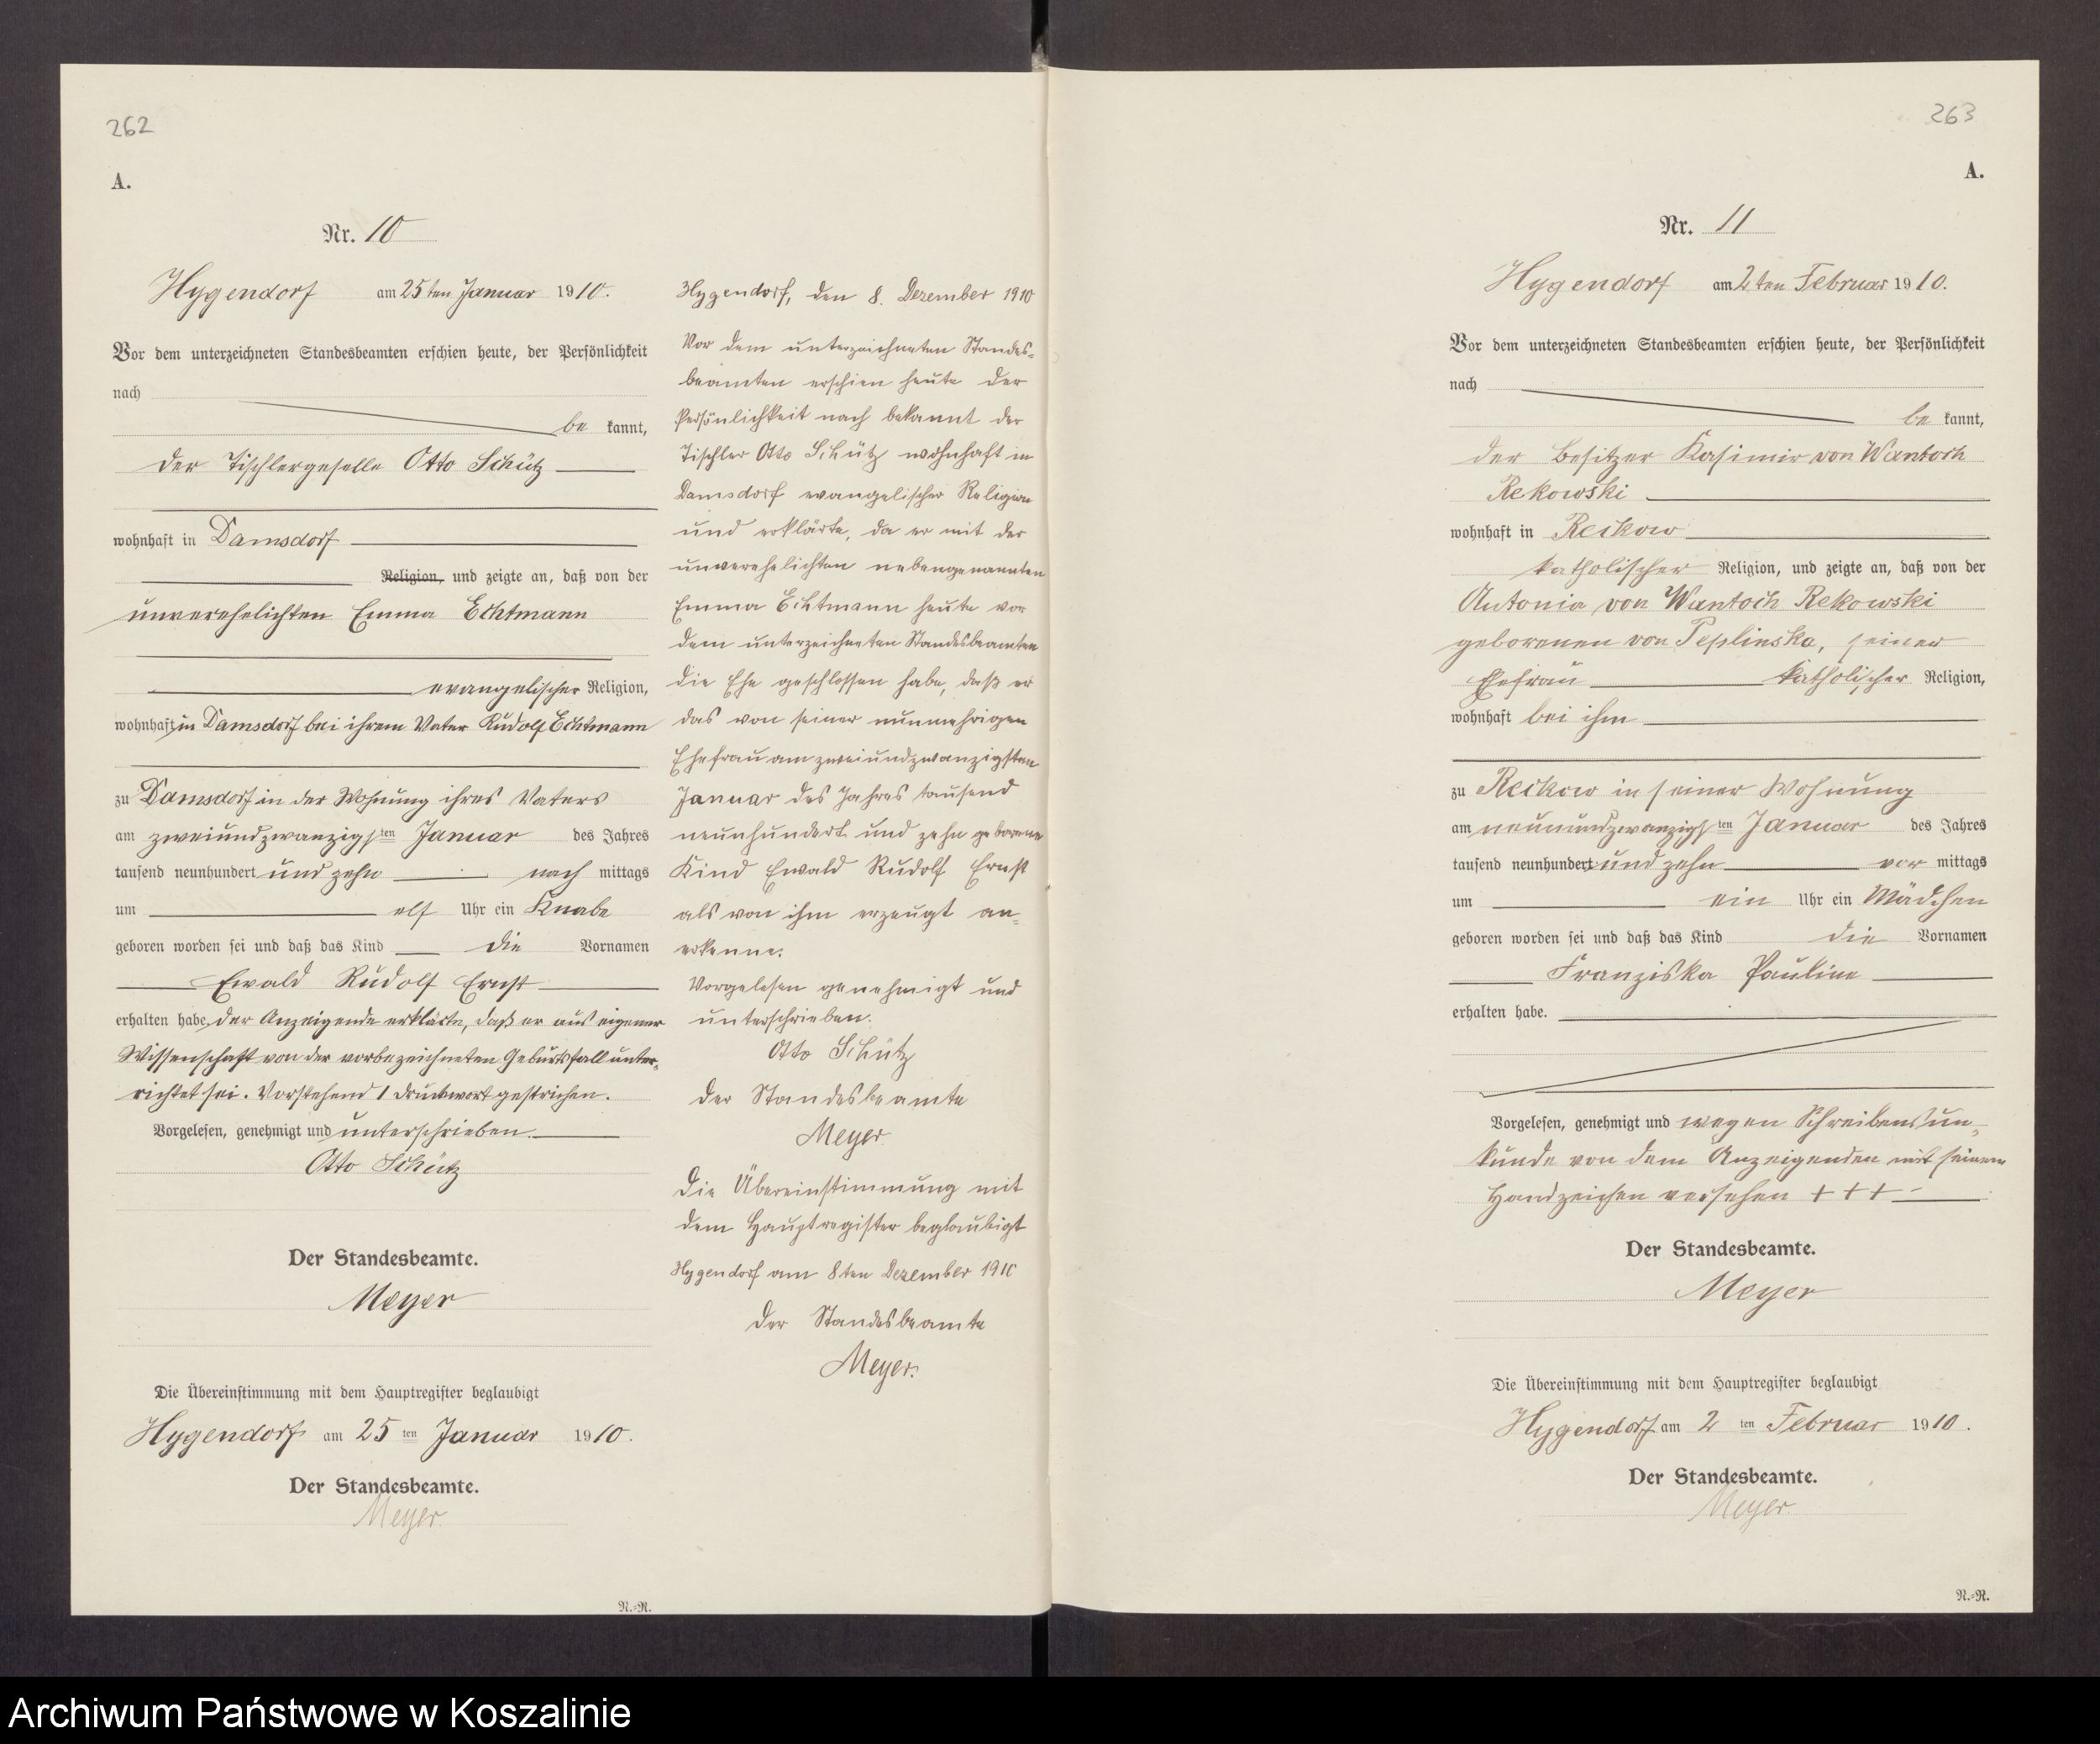 262
A.
Nr. 10
Hygendorf am 25ten Januar 1910.
Vor dem unterzeichneten Standesbeamten erschien heute, der Persönlichkeit
nach
be kannt,
der Tischlergeselle Otto Schütz
wohnhaft in Damsdorf
Religion, und zeigte an, daß von der
unverehelichten Emma Echtmann
evangelischer Religion,
wohnhaft in Damsdorf bei ihrem Vater Rudolf Echtmann
zu Damsdorf in der Wohnung ihres Vaters
am zweiundzwanzigsten Januar des Jahres
tausend neunhundert und zehn nach mittags
um elf Uhr ein Knabe
geboren worden sei und daß das Kind die Vornamen
Ewald Rudolf Ernst
erhalten habe, der Anzeigende erklärte, daß er aus eigener
Wissenschaft von der vorbezeichneten Geburtsfall unter-
richtet sei. Vorstehend 1 Druckwort gestrichen.
Vorgelesen, genehmigt und unterschrieben.
Otto Schütz
Der Standesbeamte.
Meyer
Die Übereinstimmung mit dem Hauptregister beglaubigt
Hygendorf am 25 ten Januar 1910.
Der Standesbeamte.
Meyer.
N.-R.
Hygendorf, den 8. Dezember 1910
Vor dem unterzeichneten Standes-
beamten erschien heute der
Persönlichkeit nach bekannt der
Tischler Otto Schütz wohnhaft in
Damsdorf evangelischer Religion
und erklärte, da er mit der
unverehelichten nebengenannten
Emma Echtmann heute vor
dem unterzeichneten Standesbeamten
die Ehe geschlossen habe, daß er
das von seiner nunmehrigen
Ehefrau am zweiundzwanzigsten
Januar des Jahres tausend
neunhundert und zehn geborene
Kind Ewald Rudolf Ernst
als von ihm erzeugt an-
erkenne.
Vorgelesen genehmigt und
unterschrieben.
Otto Schütz
Der Standesbeamte
Meyer
Die Übereinstimmung mit
dem Hauptregister beglaubigt
Hygendorf am 8ten Dezember 1910
Der Standesbeamte
Meyer.
263
A.
Nr. 11
Hygendorf am 2ten Februar 1910.
Vor dem unterzeichneten Standesbeamten erschien heute, der Persönlichkeit
nach
be kannt,
der Besitzer Kasimir von Wantoch
Rekowski
wohnhaft in Reckow
katholischer Religion, und zeigte an, daß von der
Antonia von Wantoch Rekowski
geborenen von Peplinska, seiner
Ehefrau katholischer Religion,
wohnhaft bei ihm
zu Reckow in seiner Wohnung
am neunundzwanzigsten Januar des Jahres
tausend neunhundert und zehn vor mittags
um ein Uhr ein Mädchen
geboren worden sei und daß das Kind die Vornamen
Franziska Pauline
erhalten habe.
Vorgelesen, genehmigt und wegen Schreibensun-
kunde von dem Anzeigenden mit seinem
Handzeichen versehen + + +
Der Standesbeamte.
Meyer
Die Übereinstimmung mit dem Hauptregister beglaubigt
Hygendorf am 2 ten Februar 1910.
Der Standesbeamte.
Meyer.
N.-R.
Archiwum Państwowe w Koszalinie